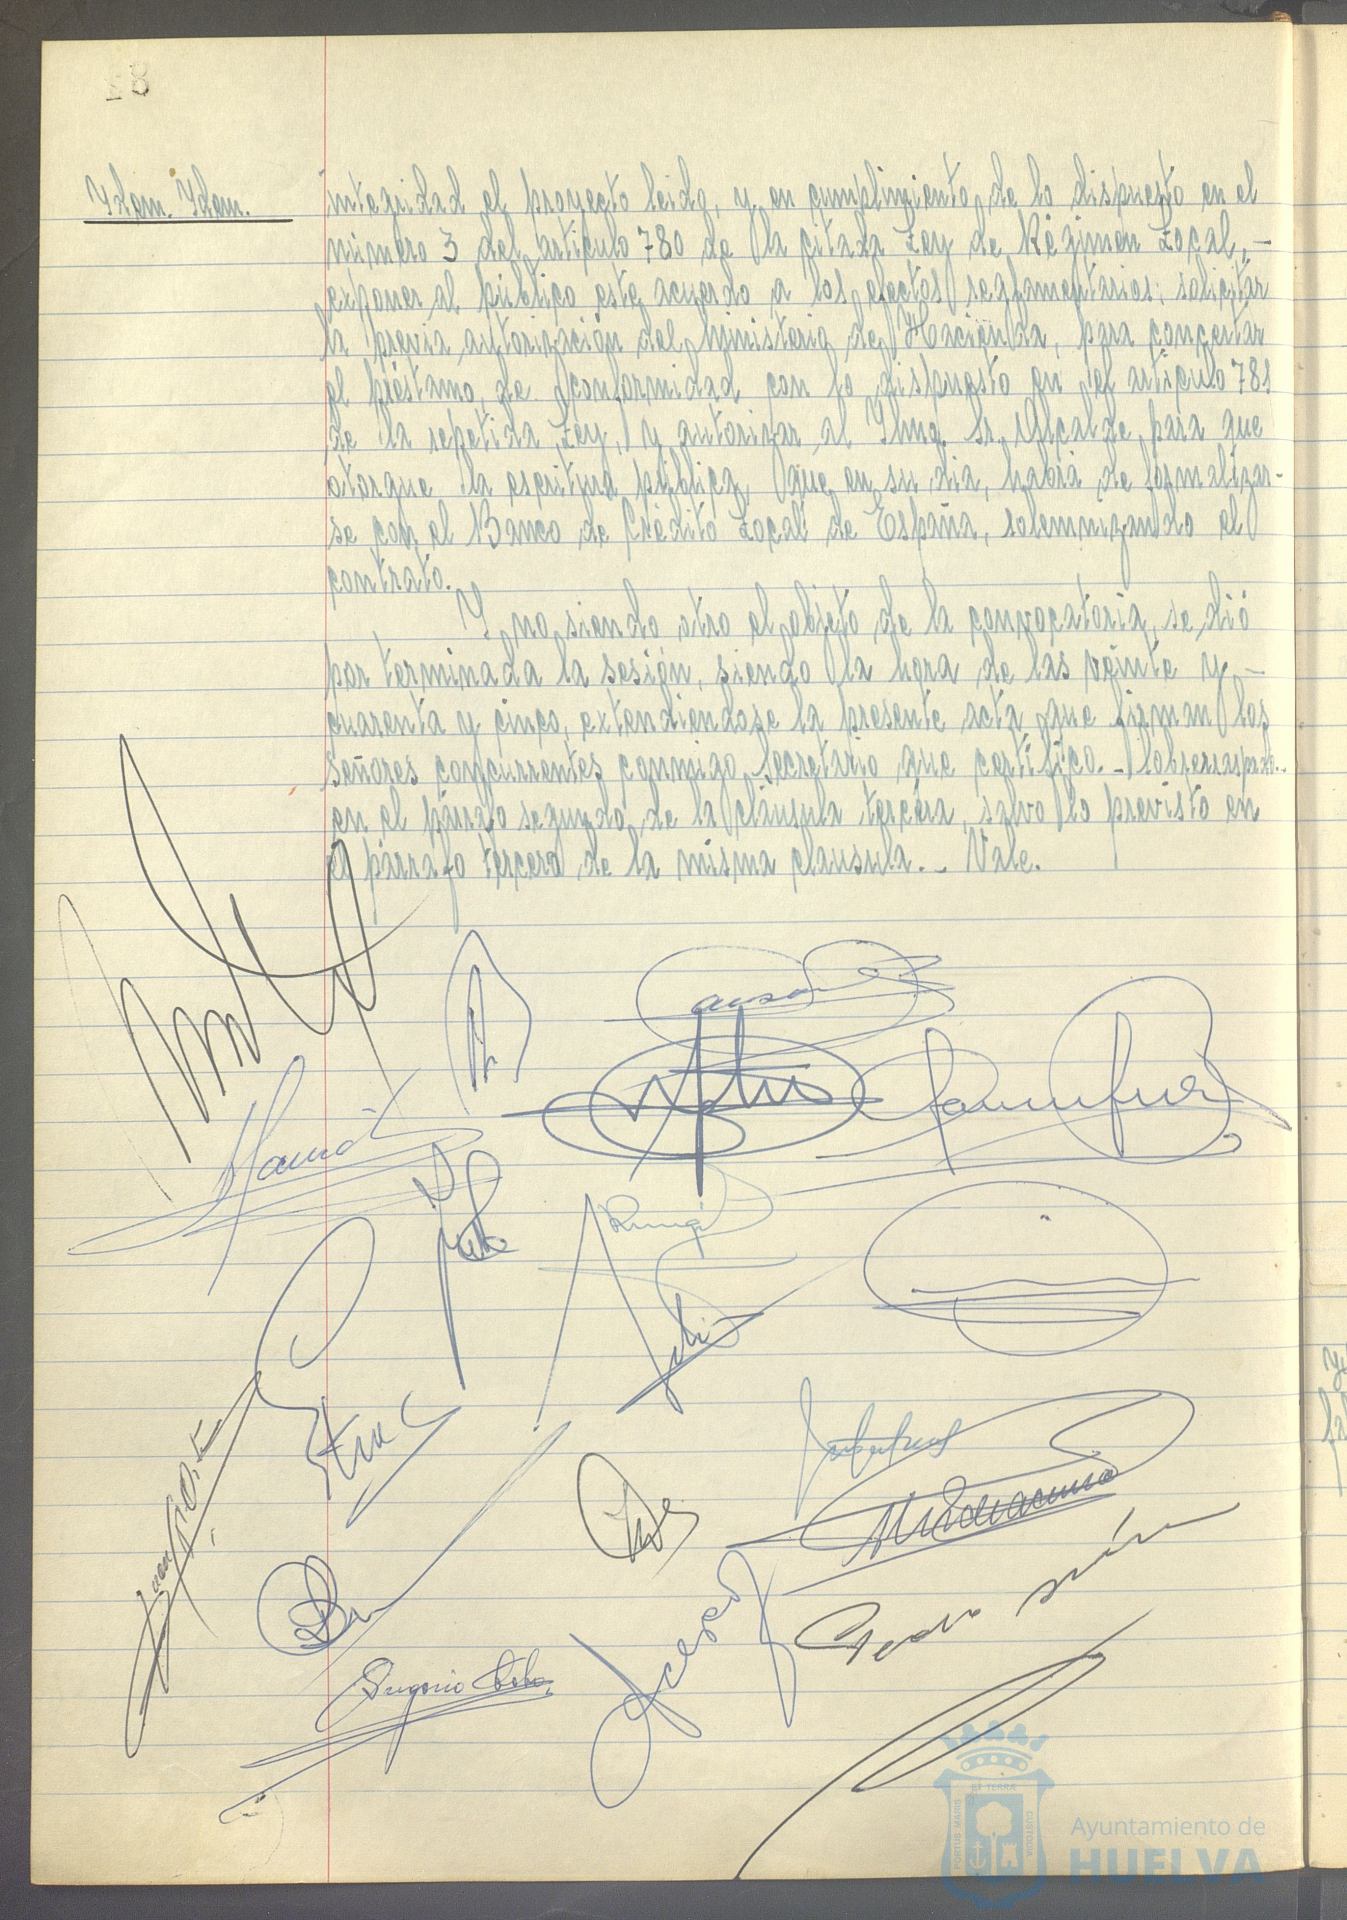 28
Ydem. Ydem.
integridad el proyecto leido, y en cumplimiento de lo dispuesto en el
número 3 del artículo 780 de la citada Ley de Régimen Local, -
exponer al público este acuerdo a los efectos reglamentarios; solicitar
la previa autorización del Ministerio de Hacienda, para concertar
el préstamo, de conformidad con lo dispuesto en el artículo 781
de la repetida Ley, y autorizar al Ilmo. Sr. Alcalde, para que
otorgue la escritura pública, que en su dia, habrá de formalizar-
se con el Banco de Crédito Local de España, solemnizando el
contrato.
Y no siendo otro el objeto de la convocatoria, se dió
por terminada la sesión, siendo la hora de las veinte y -
cuarenta y cinco, extendiendose la presente acta que firman los
Señores concurrentes conmigo, Secretario que certifico. - Sobrerraspado.-
en el párrafo segundo, de la cláusula tercera, salvo lo previsto en
el párrafo tercero de la misma clausula. - Vale.
Eugenio
Pedro
PORTUS MARIS ET TERRAE CUSTODIA
Ayuntamiento de
HUELVA